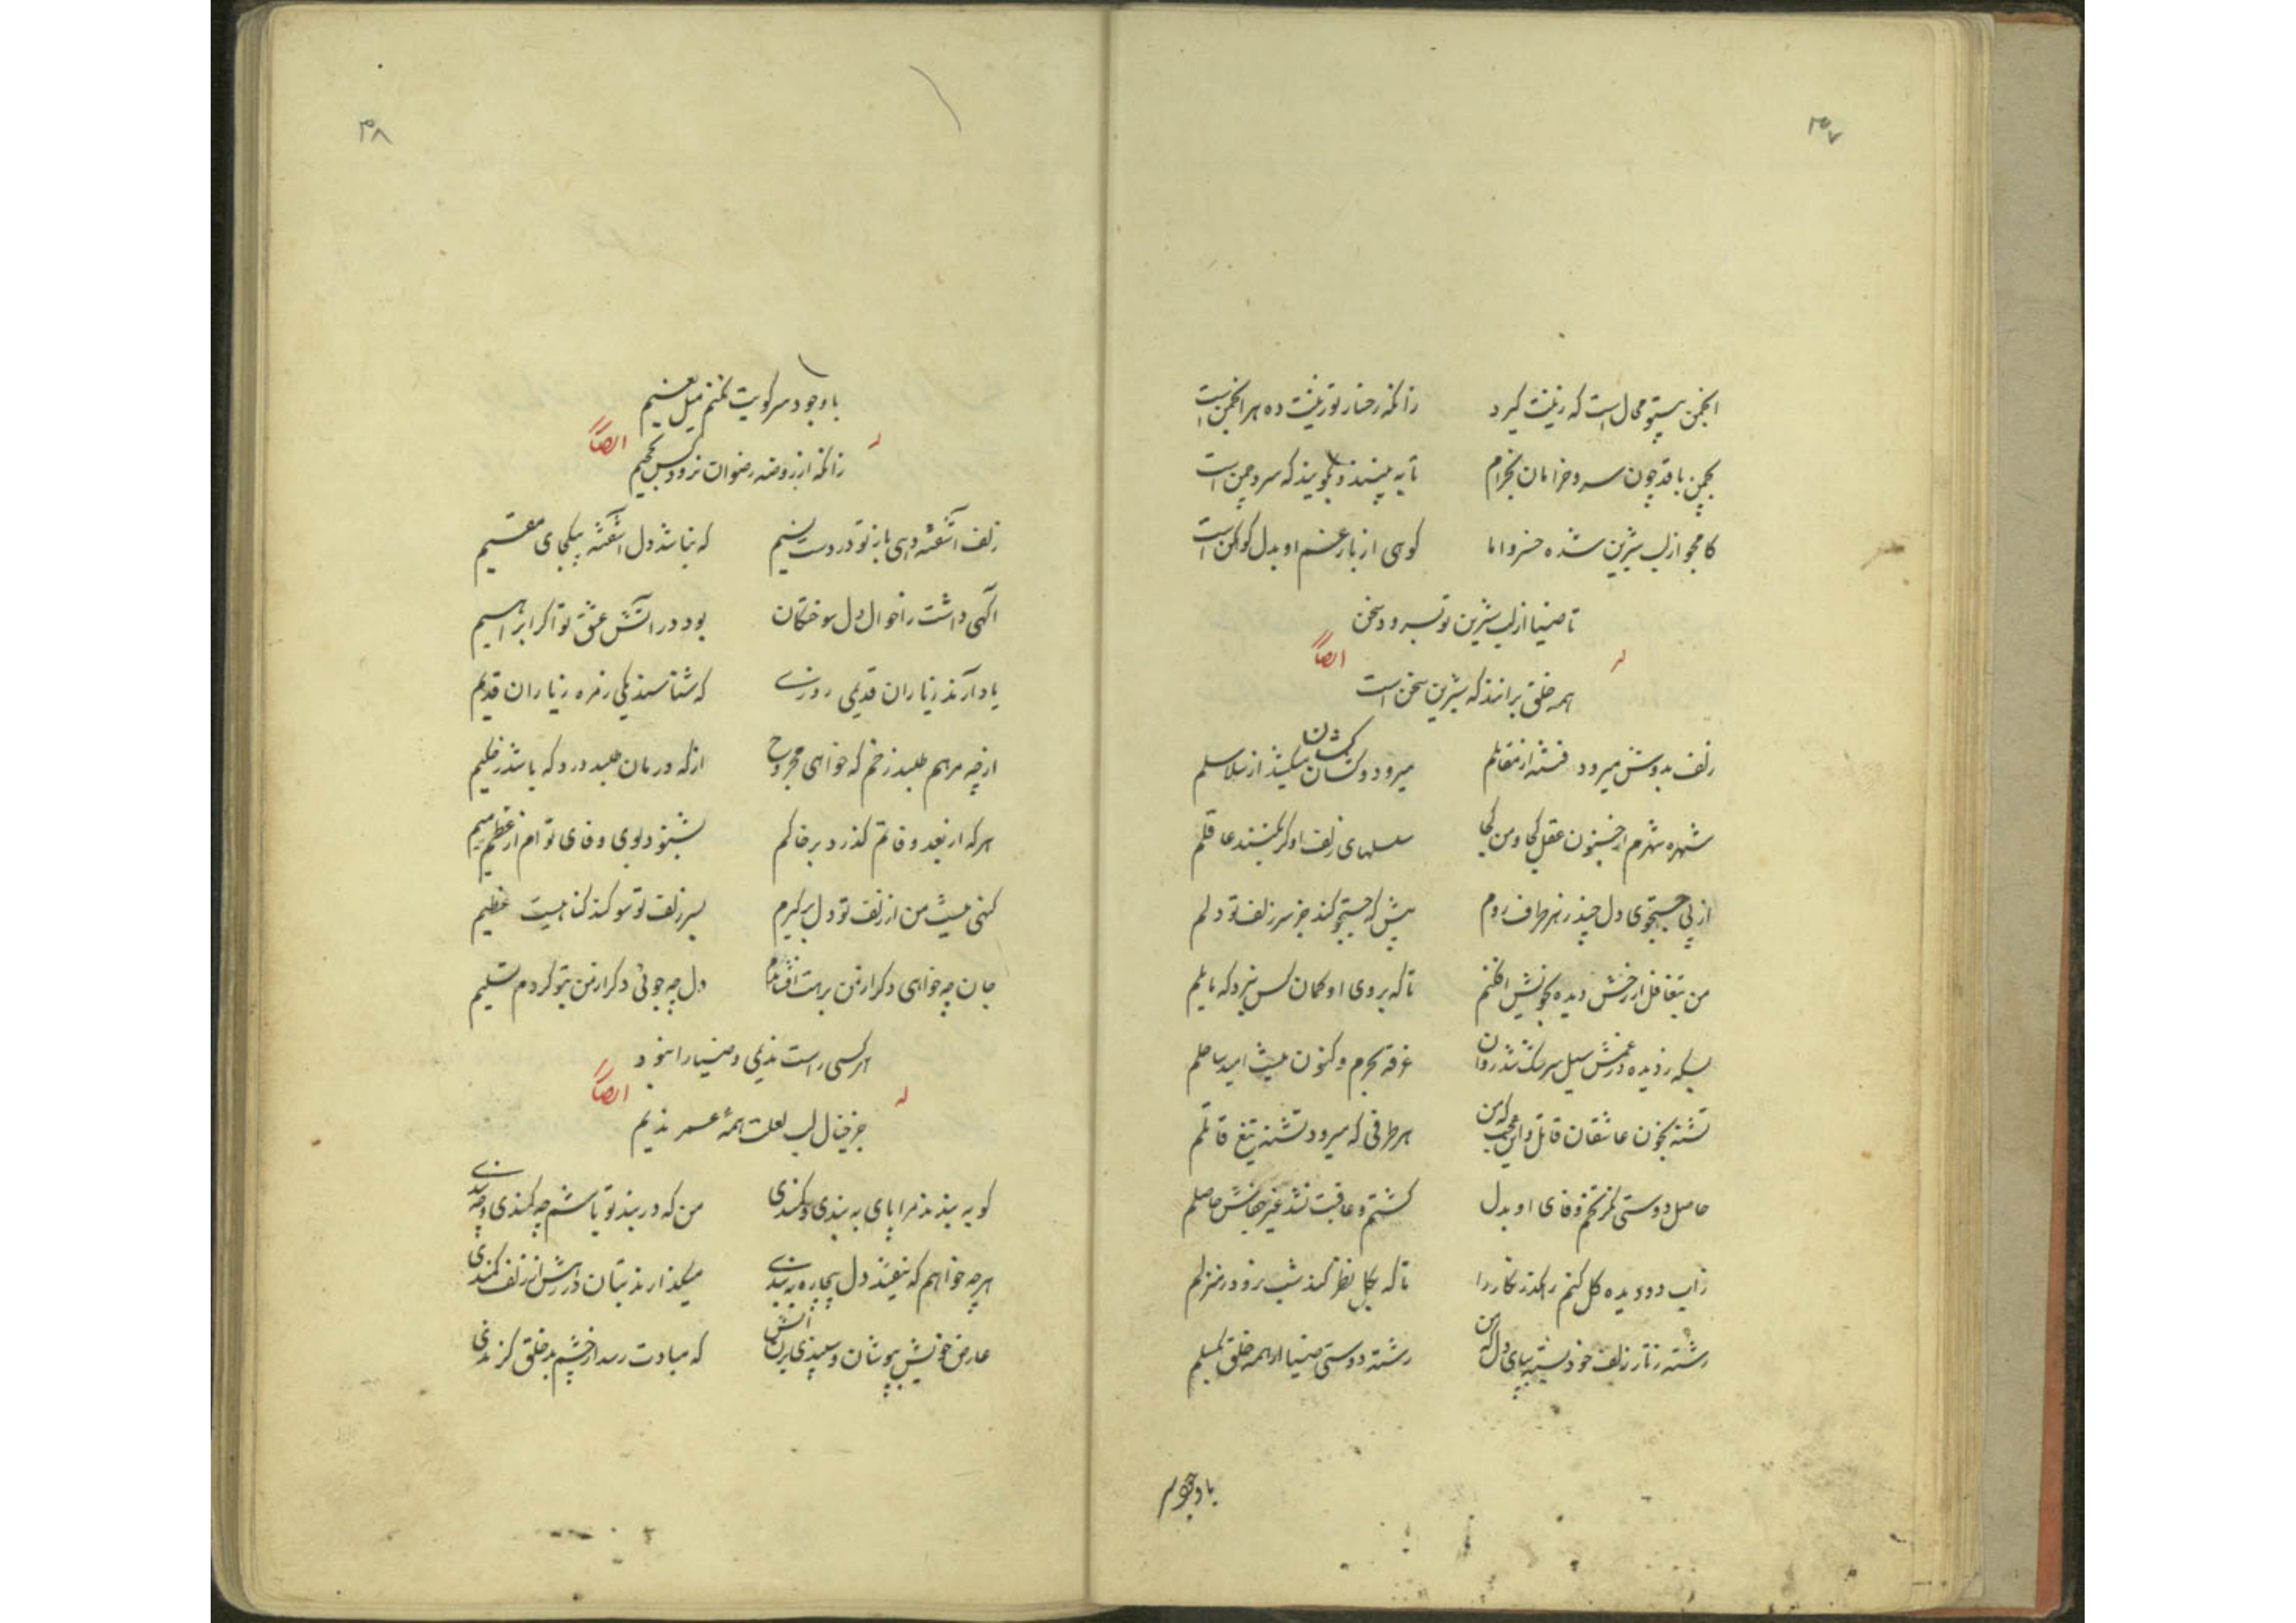 ۳۷
انجمن بیتو محال است که زینت گیرد زانکه رخسار تو زینت ده هر انجمن است
بچمن با قد چون سرو خرامان بخرام تا به بینند و بگویند که سرو چمن است
کامجو از لب شیرین شده خسرو اما کوهی از بار غم او بدل کوهکن است
تا ضیا از لب شیرین تو بسرود سخن
له ایضاً
همه خلق برانند که شیرین سخن است
زلف بدوش میرود فتنه از مقابلم میرود و کشان کشان میکشد از سلاسلم
شهره شهرم از جنون عقل کجا و من کجا سلسلهای زلف او گر نکشند عاقلم
از پی جستجوی دل چند بهر طرف روم پیش که جستجو کند جز سر زلف تو دلم
من بتغافل از رخش دیده بخویش افکنم تا که بروی او گمان کس نبرد که مایلم
بسکه ز دیده در غمش سیل سرشک شد روان غرقه بحرم و کنون نیست امید ساحلم
تشنه بخون عاشقان قاتل و این عجب که من هر طرفی که میرود تشنه تیغ قاتلم
حاصل دوستی نگر تخم وفای او بدل کشتم و عاقبت نشد غیر جفاش حاصلم
زاب دو دیده گل کنم رهگذر نگار را تا که بگل نظر کند شب نرود ز منزلم
رشته ز تار زلف خود بسته بپای دل که من رشته دوستی ضیا از همه خلق بگسلم
باوجود سر
۳۸
باوجود سر کویت نکنم میل نعیم
له ایضاً
زانکه از روضه رضوان نرود کس بجحیم
زلف آشفته دهی باز تو در دست نسیم که نباشد دل آشفته بیکجای مقیم
آگهی داشت ز احوال دل سوختگان بود در آتش عشق تو اگر ابراهیم
یاد آرند ز یاران قدیمی روزی که شناسند یکی زمره ز یاران قدیم
از چه مرهم طلبد زخم که خواهی مجروح از که درمان طلبد درد که باشد ز حکیم
هر که از بعد وفاتم گذرد بر خاکم بشنود بوی وفای تو ام از عظم رمیم
کنهی نیست من از زلف تو دل برگیرم بسر زلف تو سوگند گناهیست عظیم
جان چه خواهی دگر از من برهت افشاندم دل چه جوئی دگر از من بتو کردم تسلیم
هر کسی راست ندیمی و ضیا را نبود
له ایضاً
جز خیال لب لعلت همهٔ عمر ندیم
گو به بندند مرا پای به بندی و کمندی من که در بند تو باشم چه کمندی و چه بندی
هر چه خواهم که نیفتد دل بیچاره به بندی میگذارند بتان در رهش از زلف کمندی
عارض خویش بپوشان و سپندی بر آتش که مبادت رسد از چشم بد خلق گزندی